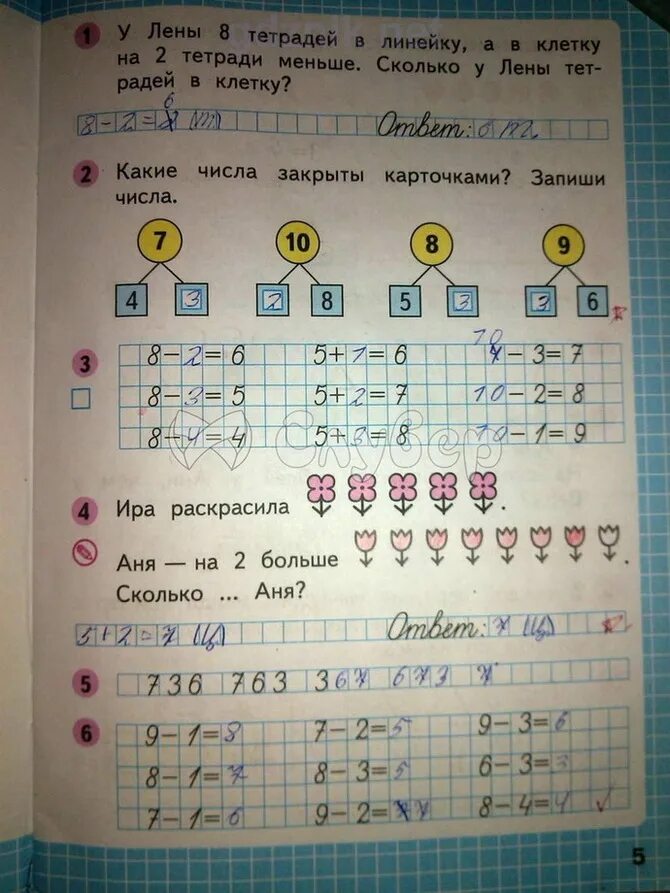 1 У Лены 8 тетрадей в линейку, а в клетку
на 2 тетради меньше. Сколько у Лены тет-
радей в клетку?
6
8-2=2 (т) Ответ: 6 т.
2 Какие числа закрыты карточками? Запиши
числа.
7 10 8 9
4 3 2 8 5 3 3 6
10
3 8-2=6 5+1=6 7-3=7
8-3=5 5+2=7 10-2=8
8-4=4 5+3=8 10-1=9
Скувер
4 Ира раскрасила .
Аня — на 2 больше .
Сколько ... Аня?
5+2=7 (ц) Ответ: 7 (ц)
5 736 763 367 673 7
6 9-1=8 7-2=5 9-3=6
8-1=7 8-3=5 6-3=3
7-1=6 9-2=7 8-4=4
5